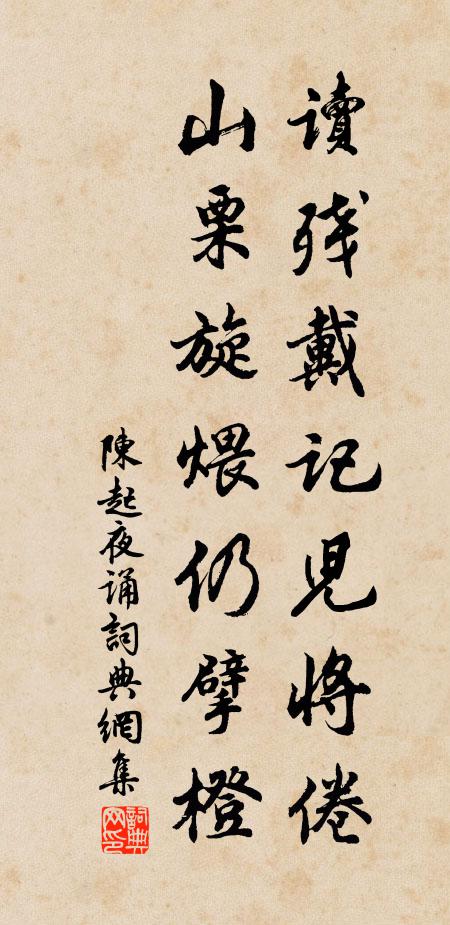 讀殘戴記兒將倦
山栗旋煨仍擘橙
陳起夜誦詞典網集
詞典网印